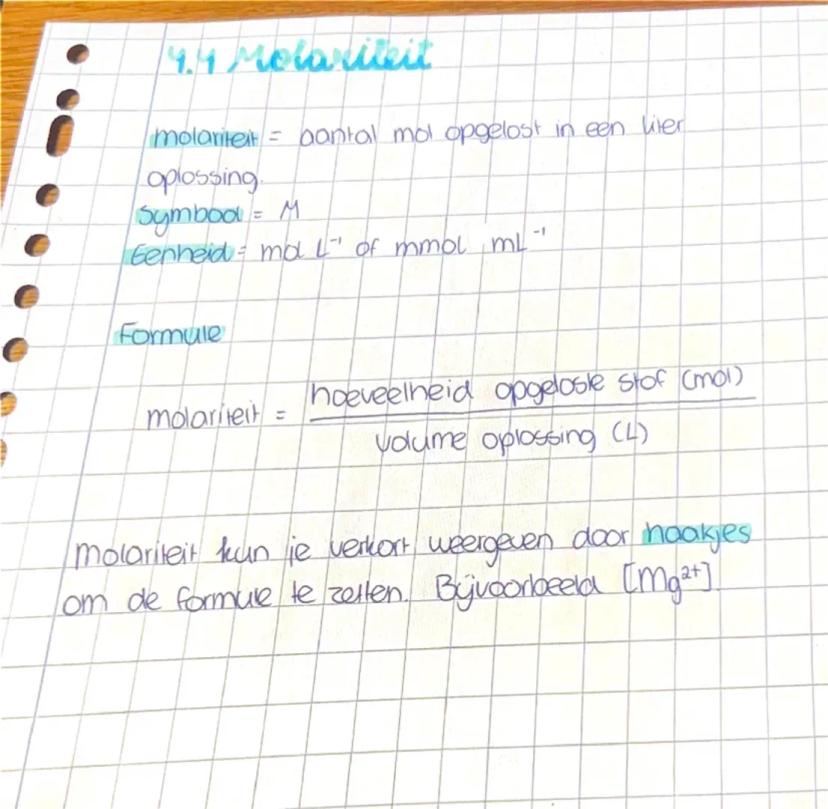 4.4 Molariteit
molariteit = aantal mol opgelost in een liter
oplossing.
Symbool = M
Eenheid = mol L⁻¹ of mmol mL⁻¹
Formule
molariteit = hoeveelheid opgeloste stof (mol)
volume oplossing (L)
Molariteit kun je verkort weergeven door haakjes
om de formule te zetten. Bijvoorbeeld [Mg²⁺].